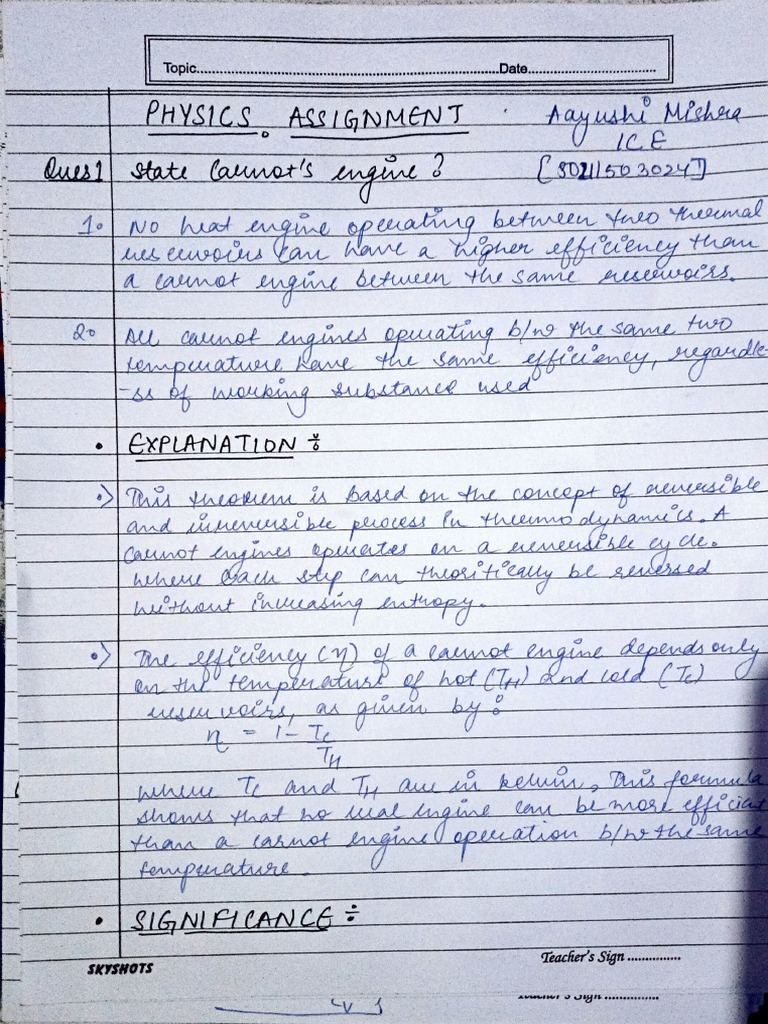 Topic............................................................Date................................
PHYSICS. ASSIGNMENT
Aayushi Mishra
ICE
Ques 1 State Carnot's engine?
1. No heat engine operating between two thermal
reservoirs can have a higher efficiency than
a carnot engine between the same reservoirs.
2. All carnot engines operating b/w the same two
temperature have the same efficiency, regardle-
-ss of working substance used
• EXPLANATION :
•> This theorem is based on the concept of reversible
and irreversible process in thermodynamics. A
Carnot engines operates on a reversible cycle.
where each step can theoritically be reversed
without increasing entropy.
•> The efficiency (η) of a carnot engine depends only
on the temperature of hot (TH) and cold (Tc)
reservoirs, as given by :
η = 1 - Tc
TH
where Tc and TH are in kelvin, This formula
shows that no real engine can be more efficient
than a carnot engine operation b/w the same
temperature.
• SIGNIFICANCE ÷
SKYSHOTS
Teacher's Sign ...............
Teacher's Sign ...............